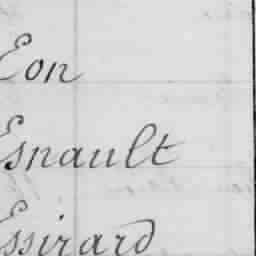 Eon
Esnault
Essirard